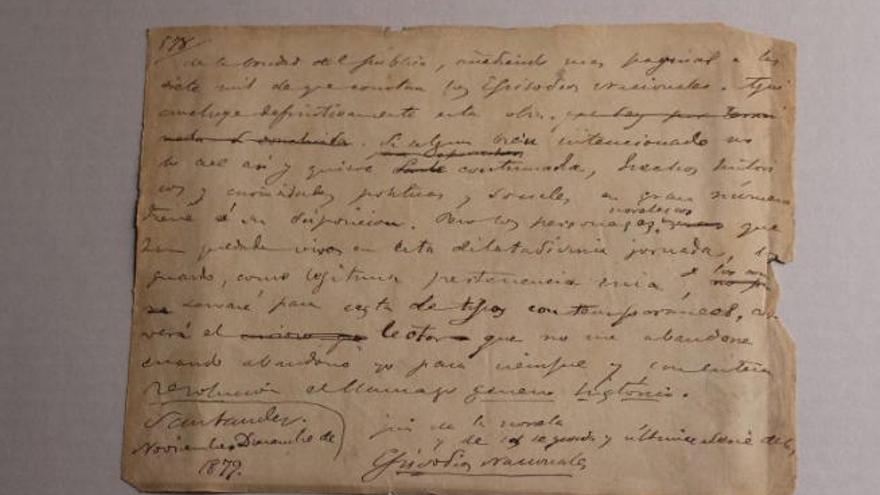 578
de la bondad del público, añadiendo mas paginas a las
siete mil de que constan los Episodios Nacionales. Aqui
concluye definitivamente esta obra. que doy por termi
nada o concluida. Si algun bien intencionado no
lo cree así y quiere continuarla, hechos histori
cos y curiosidades politicas y sociales en gran número
tiene á su disposicion. Pero los personages novelescos que
han quedado vivos en esta dilatadisima jornada, los
guardo, como legitima pertenencia mia, y los con
servaré para casta de tipos contemporaneos, como
verá el lector que no me abandone
cuando abandono yo para siempre y con entera
resolución el llamado genero historico.
Santander.
Noviembre Diciembre de
1879.
fin de la novela
y de la segunda y última serie de los
Episodios Nacionales